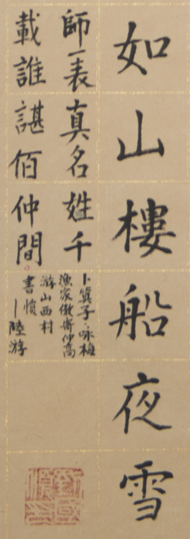 如山樓船夜雪
師一表真名姓千
載誰諶佰仲間
卜算子·咏梅
漁家傲寄仲高
游山西村
書憤
—陸游